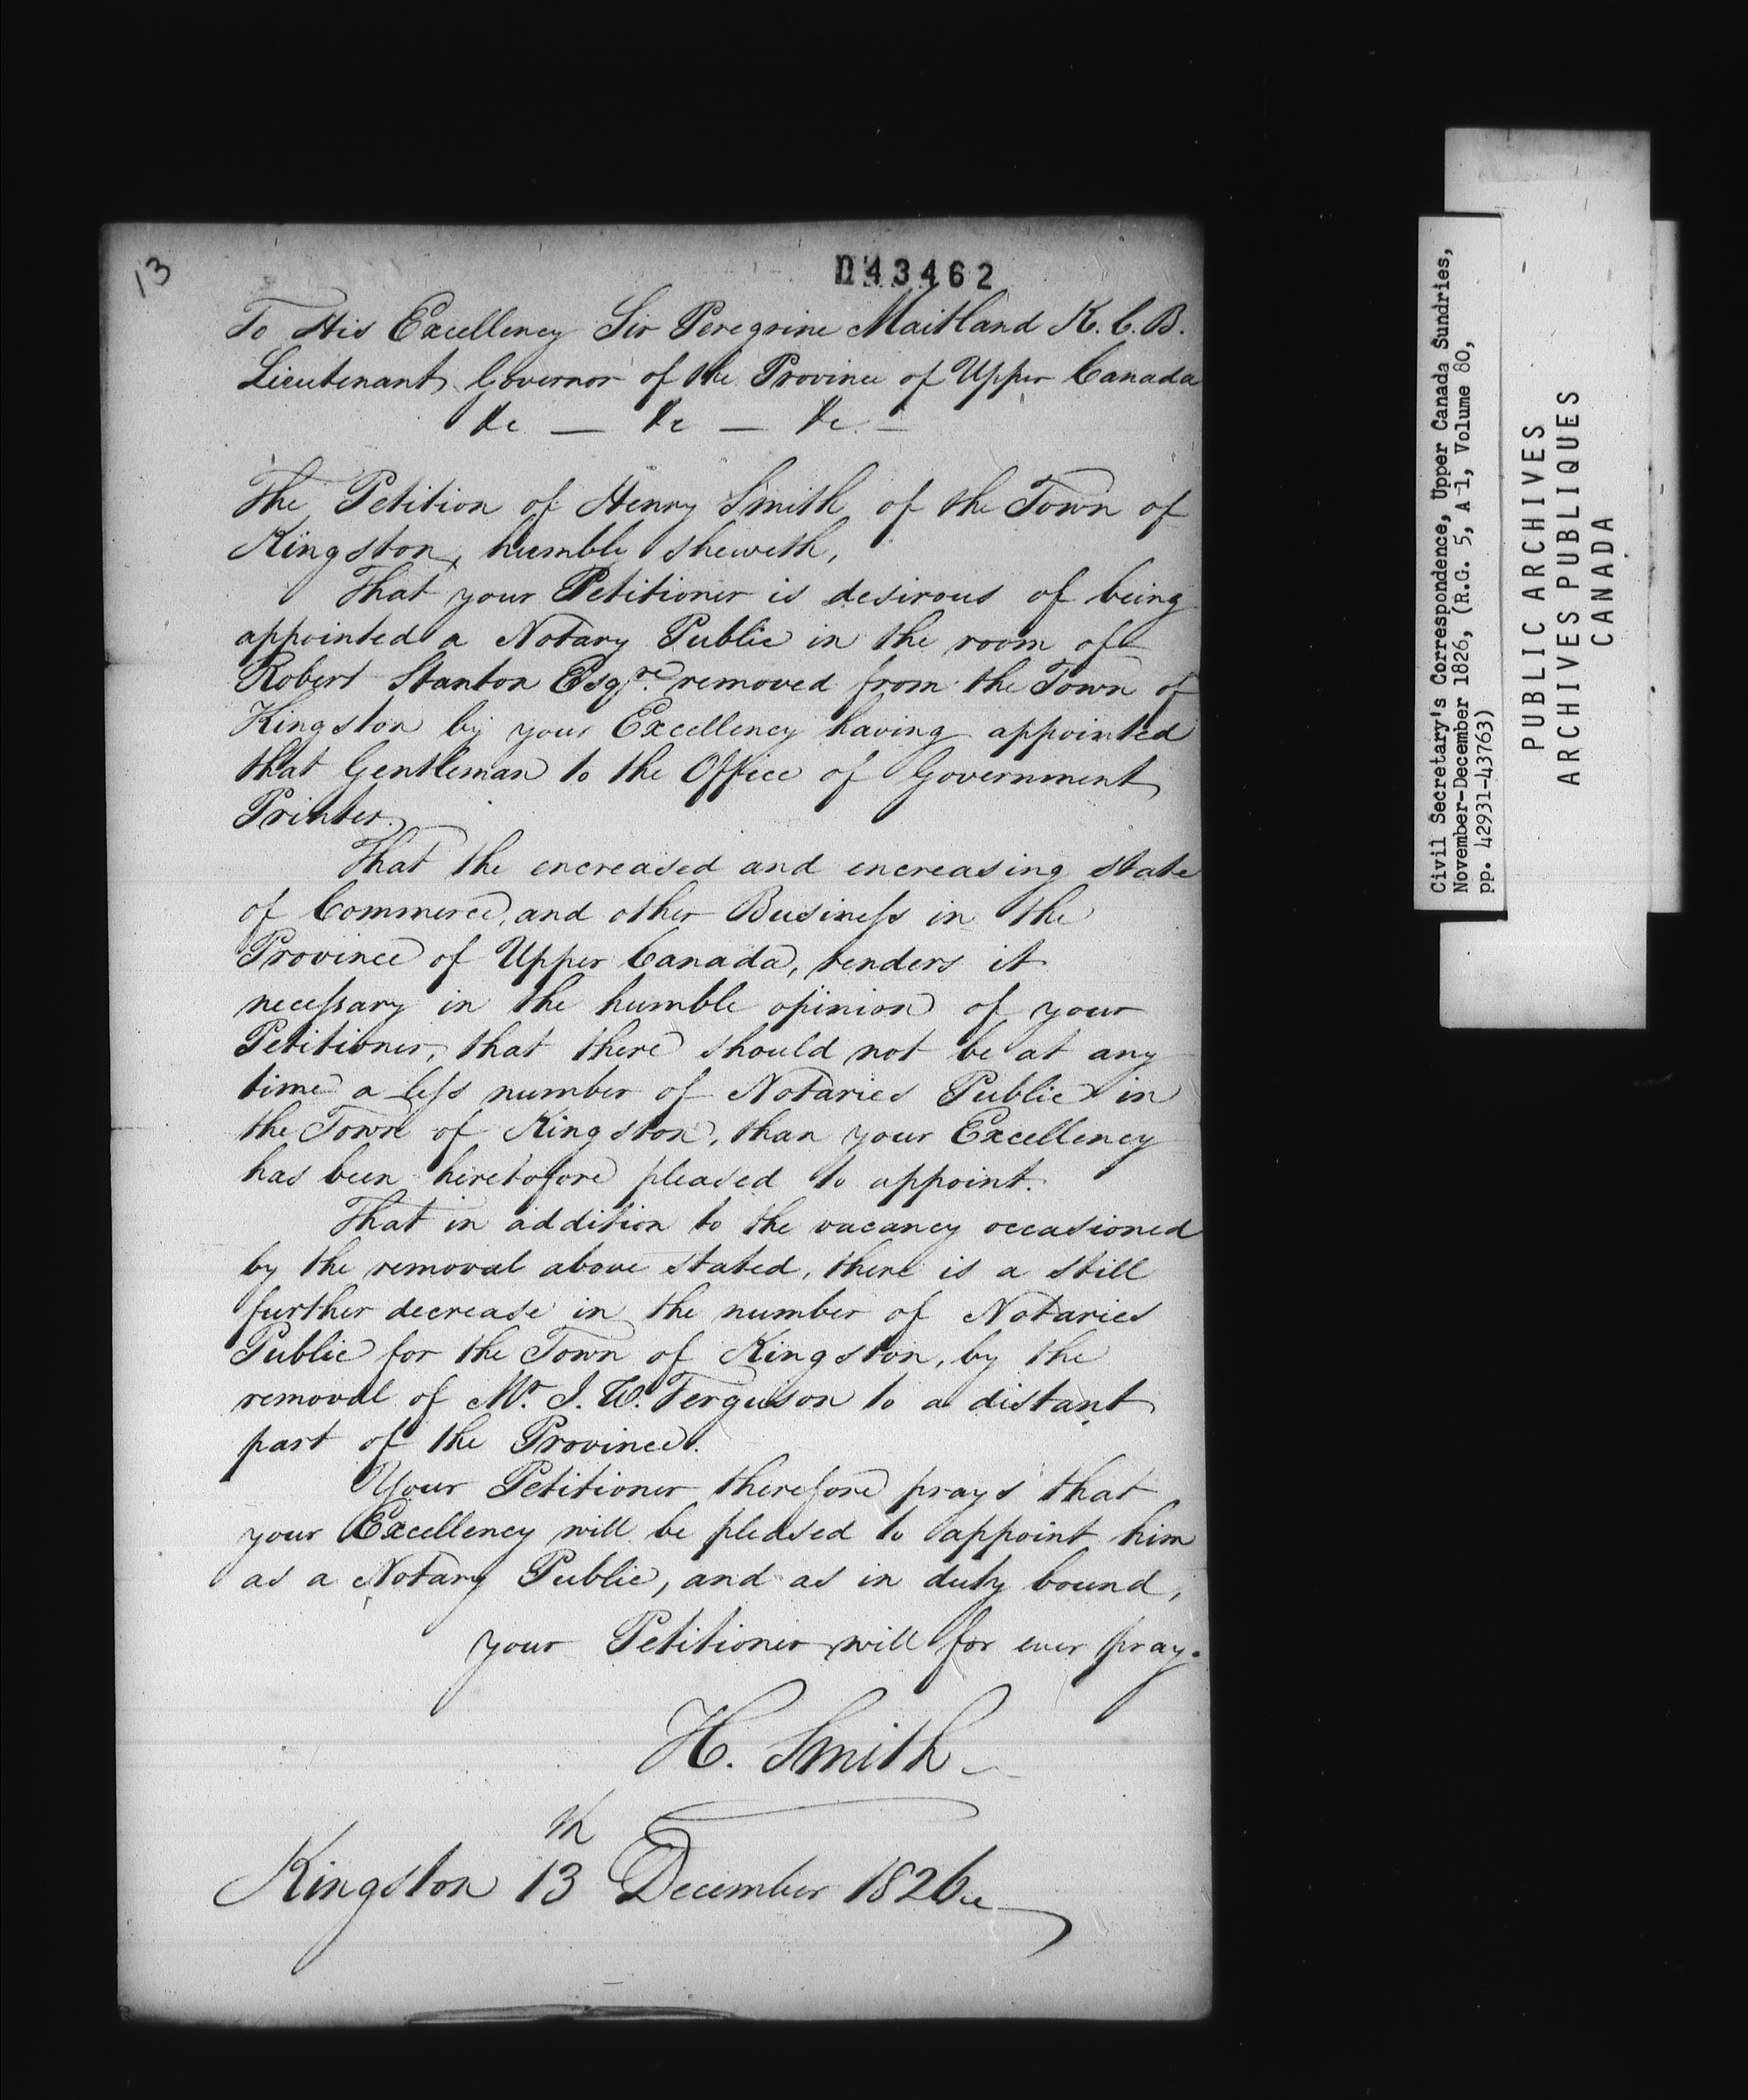 13
043462
To His Excellency Sir Peregrine Maitland K. C. B.
Lieutenant Governor of the Province of Upper Canada
&c — &c — &c —
The Petition of Henry Smith of the Town of
Kingston, humble sheweth,
That your Petitioner is desirous of being
appointed a Notary Public in the room of
Robert Stanton Esqre. removed from the Town of
Kingston by your Excellency having appointed
that Gentleman to the Office of Government
Printer.
That the encreased and encreasing state
of Commerce, and other Business in the
Province of Upper Canada, renders it
necessary in the humble opinion of your
Petitioner, that there should not be at any
time a less number of Notaries Public in
the Town of Kingston, than your Excellency
has been heretofore pleased to appoint.
That in addition to the vacancy occasioned
by the removal above stated, there is a still
further decrease in the number of Notaries
Public for the Town of Kingston, by the
removal of Mr. J. W. Ferguson to a distant
part of the Province.
Your Petitioner therefore prays that
your Excellency will be pleased to appoint him
as a Notary Public, and as in duty bound,
your Petitioner will for ever pray.
H. Smith
Kingston 13th December 1826
Civil Secretary's Correspondence, Upper Canada Sundries,
November-December 1826, (R.G. 5, A-1, Volume 80,
pp. 42931-43763)
PUBLIC ARCHIVES
ARCHIVES PUBLIQUES
CANADA